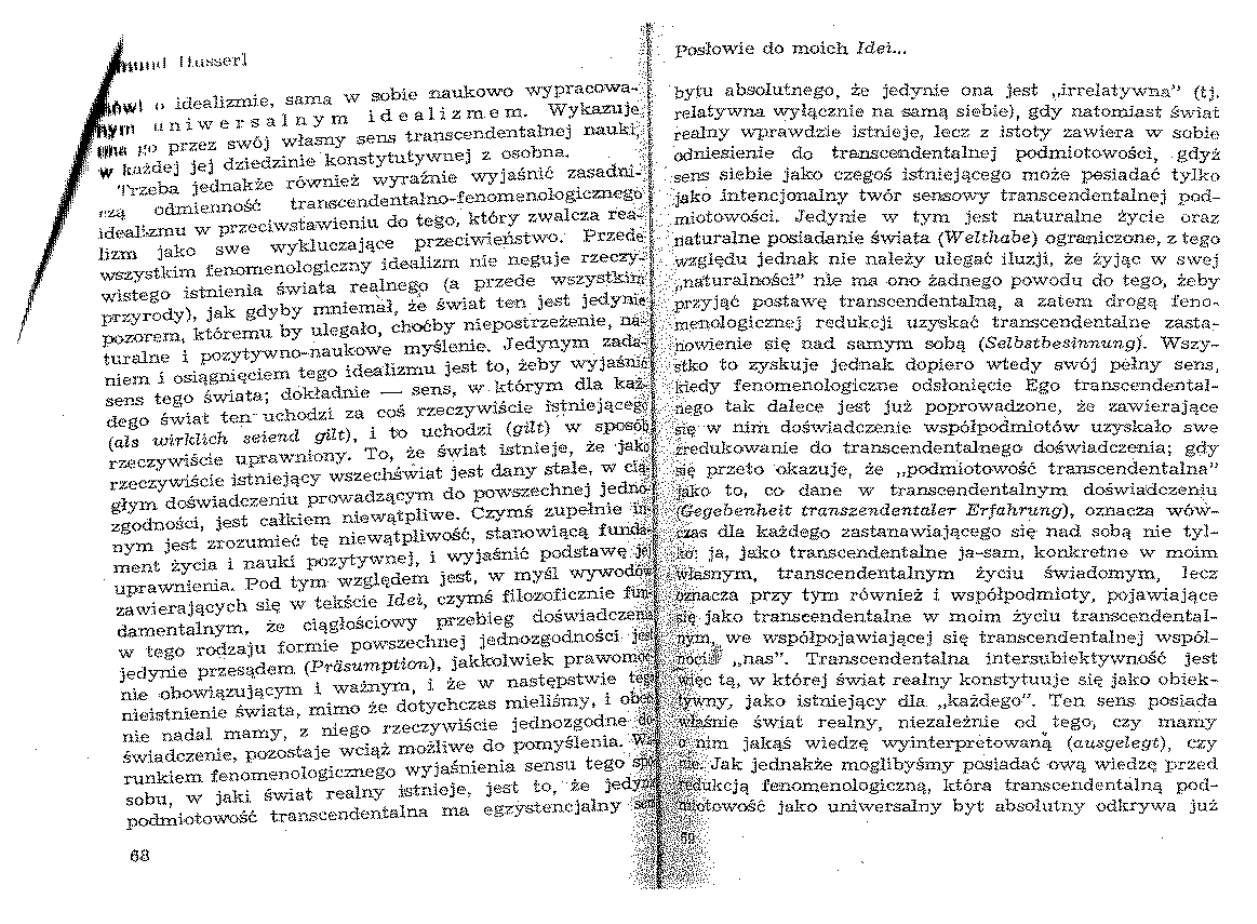 mund Husserl
o idealizmie, sama w sobie naukowo wypracowa-
nym uniwersalnym idealizmem. Wykazuje
ona go przez swój własny sens transcendentalnej nauki,
w każdej jej dziedzinie konstytutywnej z osobna.
Trzeba jednakże również wyraźnie wyjaśnić zasadni-
czą odmienność transcendentalno-fenomenologicznego
idealizmu w przeciwstawieniu do tego, który zwalcza rea-
lizm jako swe wykluczające przeciwieństwo. Przede
wszystkim fenomenologiczny idealizm nie neguje rzeczy-
wistego istnienia świata realnego (a przede wszystkim
przyrody), jak gdyby mniemał, że świat ten jest jedynie
pozorem, któremu by ulegało, choćby niepostrzeżenie, na-
turalne i pozytywno-naukowe myślenie. Jedynym zada-
niem i osiągnięciem tego idealizmu jest to, żeby wyjaśnić
sens tego świata; dokładnie — sens, w którym dla każ-
dego świat ten uchodzi za coś rzeczywiście istniejącego
(als wirklich seiend gilt), i to uchodzi (gilt) w sposób
rzeczywiście uprawniony. To, że świat istnieje, że jako
rzeczywiście istniejący wszechświat jest dany stale, w cią-
głym doświadczeniu prowadzącym do powszechnej jedno-
zgodności, jest całkiem niewątpliwe. Czymś zupełnie in-
nym jest zrozumieć tę niewątpliwość, stanowiącą funda-
ment życia i nauki pozytywnej, i wyjaśnić podstawę jej
uprawnienia. Pod tym względem jest, w myśl wywodów
zawierających się w tekście Idei, czymś filozoficznie fun-
damentalnym, że ciągłościowy przebieg doświadczenia
w tego rodzaju formie powszechnej jednozgodności jest
jedynie przesądem (Präsumption), jakkolwiek prawomoc-
nie obowiązującym i ważnym, i że w następstwie tego
nieistnienie świata, mimo że dotychczas mieliśmy, i obec-
nie nadal mamy, z niego rzeczywiście jednozgodne do-
świadczenie, pozostaje wciąż możliwe do pomyślenia. Wa-
runkiem fenomenologicznego wyjaśnienia sensu tego spo-
sobu, w jaki świat realny istnieje, jest to, że jedynie
podmiotowość transcendentalna ma egzystencjalny sens
68
Posłowie do moich Idei...
bytu absolutnego, że jedynie ona jest „irrelatywna” (tj.
relatywna wyłącznie na samą siebie), gdy natomiast świat
realny wprawdzie istnieje, lecz z istoty zawiera w sobie
odniesienie do transcendentalnej podmiotowości, gdyż
sens siebie jako czegoś istniejącego może pesiadać tylko
jako intencjonalny twór sensowy transcendentalnej pod-
miotowości. Jedynie w tym jest naturalne życie oraz
naturalne posiadanie świata (Welthabe) ograniczone, z tego
względu jednak nie należy ulegać iluzji, że żyjąc w swej
„naturalności” nie ma ono żadnego powodu do tego, żeby
przyjąć postawę transcendentalną, a zatem drogą feno-
menologicznej redukcji uzyskać transcendentalne zasta-
nowienie się nad samym sobą (Selbstbesinnung). Wszy-
stko to zyskuje jednak dopiero wtedy swój pełny sens,
kiedy fenomenologiczne odsłonięcie Ego transcendental-
nego tak dalece jest już poprowadzone, że zawierające
się w nim doświadczenie współpodmiotów uzyskało swe
zredukowanie do transcendentalnego doświadczenia; gdy
się przeto okazuje, że „podmiotowość transcendentalna”
jako to, co dane w transcendentalnym doświadczeniu
(Gegebenheit transzendentaler Erfahrung), oznacza wów-
czas dla każdego zastanawiającego się nad sobą nie tyl-
ko: ja, jako transcendentalne ja-sam, konkretne w moim
własnym, transcendentalnym życiu świadomym, lecz
oznacza przy tym również i współpodmioty, pojawiające
się jako transcendentalne w moim życiu transcendental-
nym, we współpojawiającej się transcendentalnej wspól-
nocie „nas”. Transcendentalna intersubiektywność jest
więc tą, w której świat realny konstytuuje się jako obiek-
tywny, jako istniejący dla „każdego”. Ten sens posiada
właśnie świat realny, niezależnie od tego, czy mamy
o nim jakąś wiedzę wyinterpretowaną (ausgelegt), czy
nie. Jak jednakże moglibyśmy posiadać ową wiedzę przed
redukcją fenomenologiczną, która transcendentalną pod-
miotowość jako uniwersalny byt absolutny odkrywa już
69